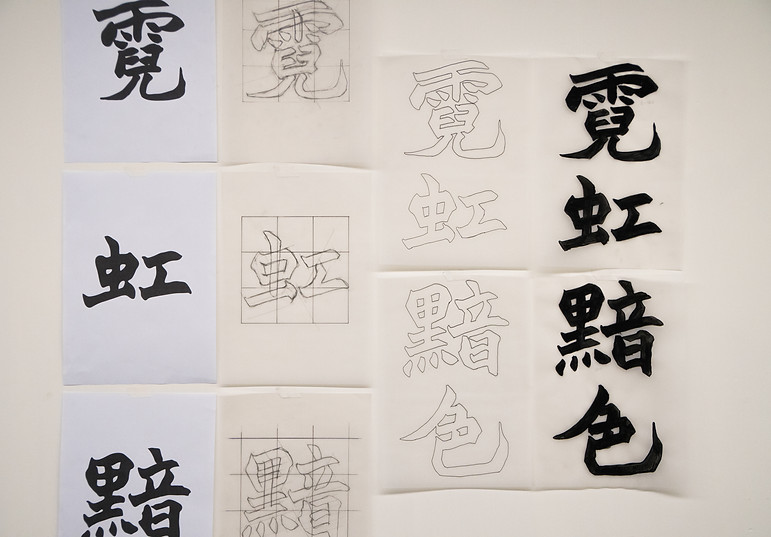 霓
虹
黯
霓
虹
黯
霓
虹
黯
色
霓
虹
黯
色